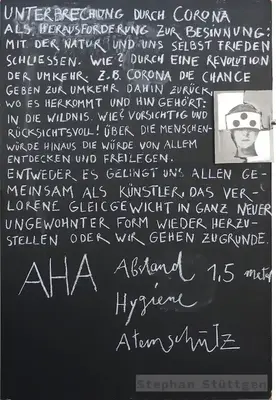 UNTERBRECHUNG DURCH CORONA
ALS HERAUSFORDERUNG ZUR BESINNUNG:
MIT DER NATUR UND UNS SELBST FRIEDEN
SCHLIESSEN. WIE? DURCH EINE REVOLUTION
DER UMKEHR. Z.B. CORONA DIE CHANCE
GEBEN ZUR UMKEHR DAHIN ZURÜCK,
WO ES HERKOMMT UND HIN GEHÖRT:
IN DIE WILDNIS. WIE? VORSICHTIG UND
RÜCKSICHTSVOLL! ÜBER DIE MENSCHEN-
WÜRDE HINAUS DIE WÜRDE VON ALLEM
ENTDECKEN UND FREILEGEN.
ENTWEDER ES GELINGT UNS ALLEN GE-
MEINSAM ALS KÜNSTLER, DAS VER-
LORENE GLEICGEWICHT IN GANZ NEUER
UNGEWOHNTER FORM WIEDER HERZU-
STELLEN ODER WIR GEHEN ZUGRUNDE.
AHA Abstand 1,5 meter
Hygiene
Atemschutz
Stephan Stüttgen